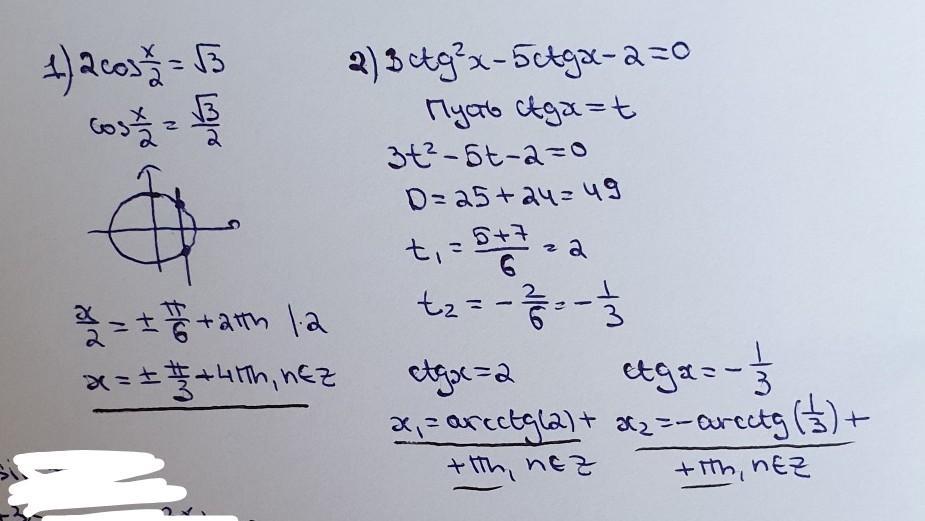 1) 2cos x/2 = √3
cos x/2 = √3/2
x/2 = ± π/6 + 2πn |·2
x = ± π/3 + 4πn, n∈Z
2) 3ctg²x - 5ctgx - 2 = 0
Пусть ctgx = t
3t² - 5t - 2 = 0
D = 25 + 24 = 49
t₁ = (5+7)/6 = 2
t₂ = -2/6 = -1/3
ctgx = 2
x₁ = arcctg(2) +
+ πn, n∈Z
ctgx = -1/3
x₂ = -arcctg(1/3) +
+ πn, n∈Z